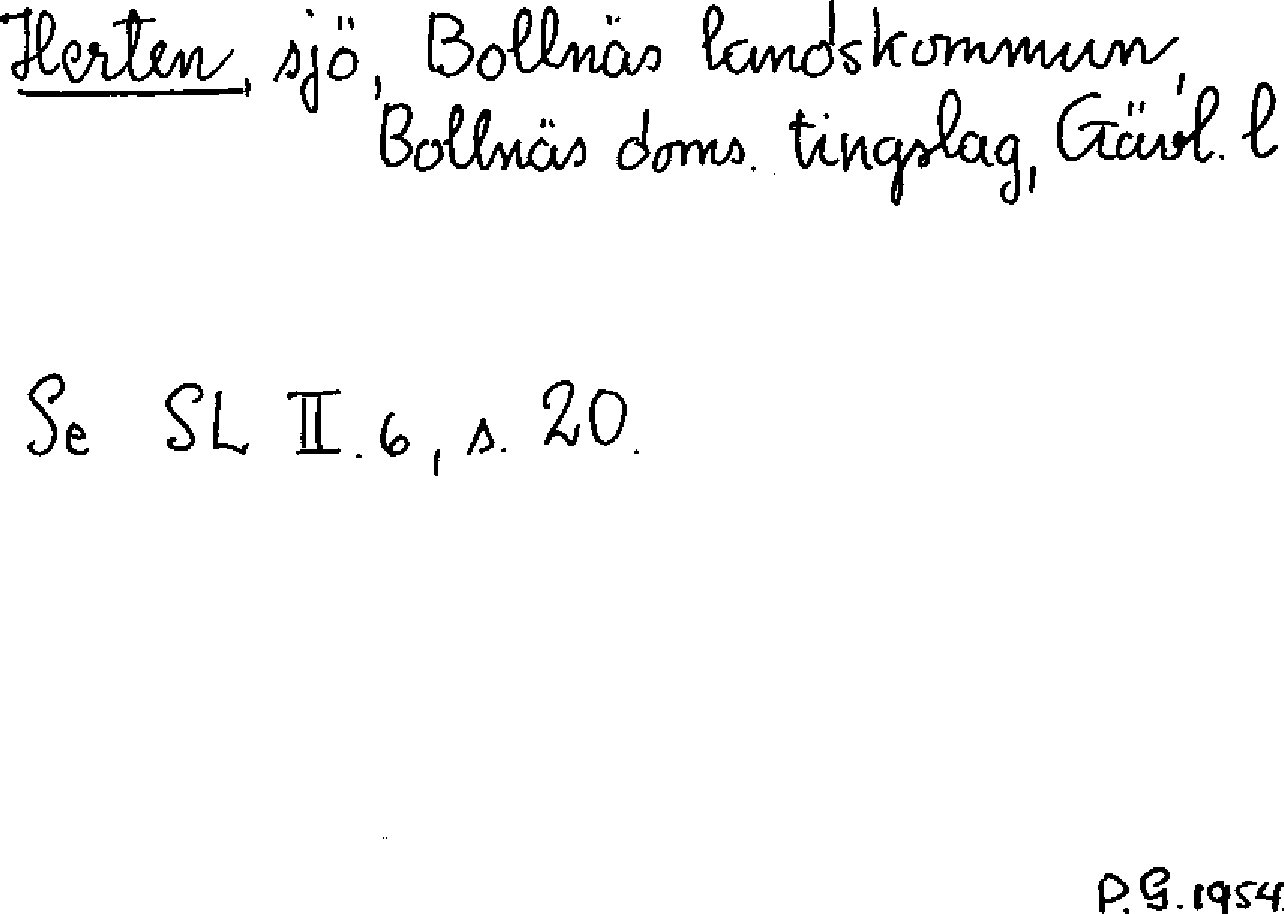 Herten, sjö, Bollnäs landskommun,
Bollnäs doms. tingslag, Gävl. l
Se SL II.6, s. 20.
P.G. 1954.